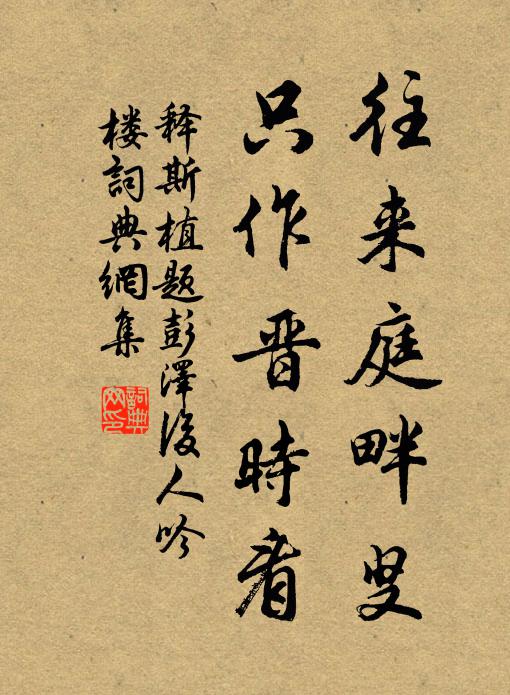 往来庭畔叟
只作晋時看
释斯植题彭澤後人吟
楼詞典網集
詞典网印